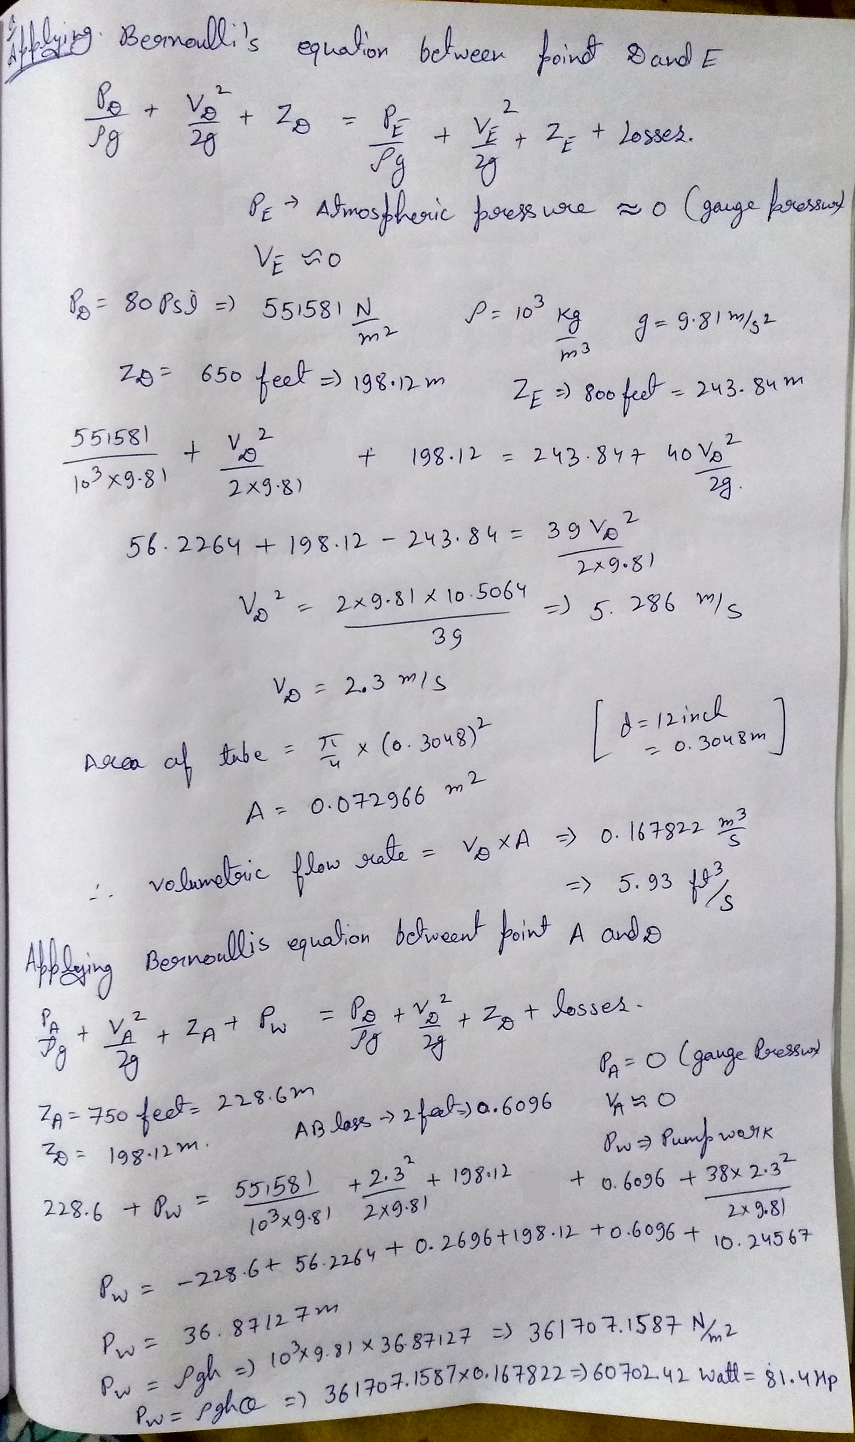 Applying Bernoulli's equation between point D and E
P_D/ρg + V_D²/2g + Z_D = P_E/ρg + V_E²/2g + Z_E + Losses.
P_E → Atmospheric pressure ≈ 0 (gauge pressure)
V_E ≈ 0
P_D = 80 Psi => 551581 N/m² ρ = 10³ kg/m³ g = 9.81 m/s²
Z_D = 650 feet => 198.12 m Z_E => 800 feet = 243.84 m
551581/10³×9.81 + V_D²/2×9.81 + 198.12 = 243.84 + 40 V_D²/2g.
56.2264 + 198.12 - 243.84 = 39 V_D²/2×9.81
V_D² = 2×9.81 × 10.5064/39 => 5.286 m/s
V_D = 2.3 m/s
Area of tube = π/4 × (0.3048)² [d = 12 inch = 0.3048m]
A = 0.072966 m²
∴ volumetric flow rate = V_D × A => 0.167822 m³/s
=> 5.93 ft³/s
Applying Bernoullis equation betweent point A and D
P_A/ρg + V_A²/2g + Z_A + P_w = P_D/ρg + V_D²/2g + Z_D + losses.
P_A = 0 (gauge Pressure)
Z_A = 750 feet = 228.6m AB loss → 2 feet => 0.6096 V_A ≈ 0
Z_D = 198.12 m. P_w => Pump work
228.6 + P_w = 551581/10³×9.81 + 2.3²/2×9.81 + 198.12 + 0.6096 + 38×2.3²/2×9.81
P_w = -228.6 + 56.2264 + 0.2696 + 198.12 + 0.6096 + 10.24567
P_w = 36.87127 m
P_w = ρgh => 10³×9.81 × 36.87127 => 361707.1587 N/m²
P_w = ρghQ => 361707.1587×0.167822 => 60702.42 watt = 81.4 Hp